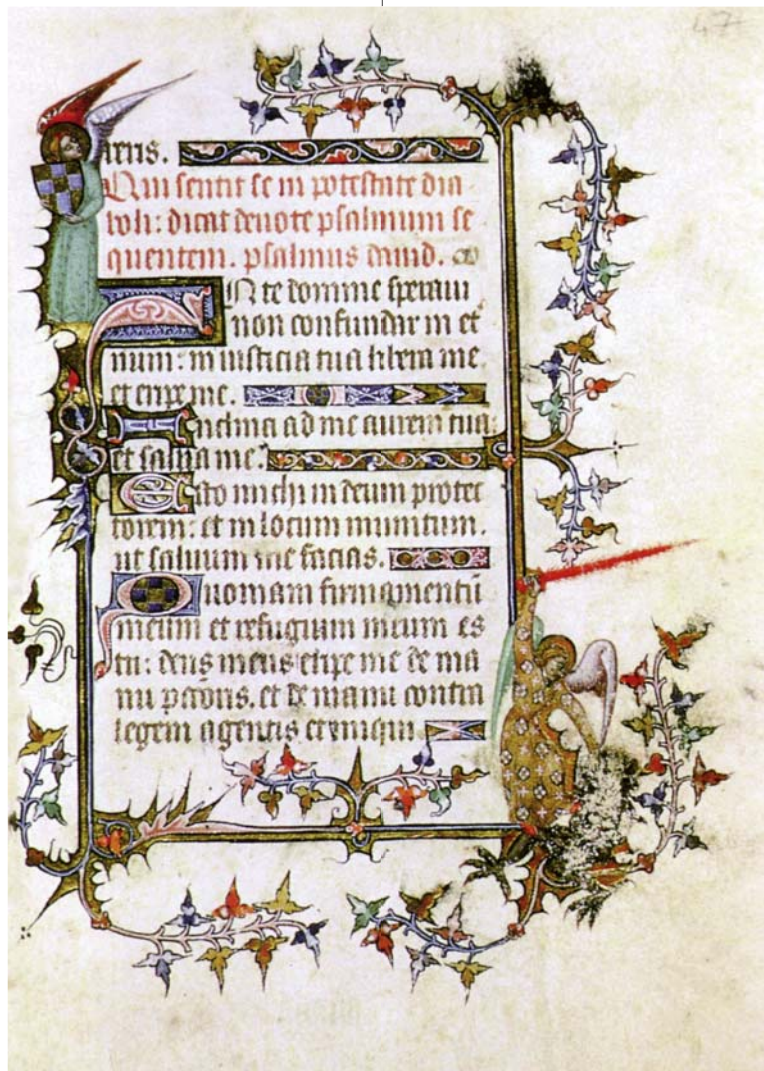 47
Qui sentit se in potestate dia
boli: dicat deuote psalmum se
quentem. psalmus dauid.
In te domine speraui
non confundar in et
num: in iusticia tua libera me
et eripe me.
Inclina ad me aurem tua
et salua me.
Esto michi in deum protec
torem: et in locum munitum.
ut saluum me facias.
Quoniam firmamentū
meum et refugium meum es
tu: deus meus eripe me de ma
nu pctoris. et de manu contra
legem agentis et iniqui.